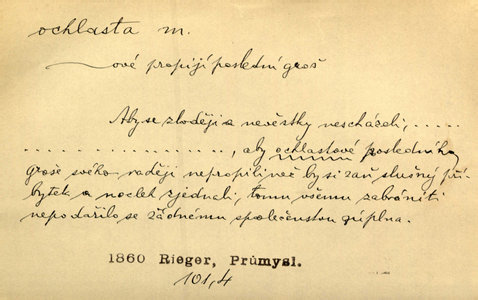 ochlasta m.
—ové propijí poslední groš
Aby se zloději a nevěstky nescházeli, ......
...................., aby ochlastové posledního
groše svého raději nepropili než by si zaň slušný pří-
bytek a nocleh zjednali, tomu všemu zabrániti
nepodařilo se žádnému společenstvu úplna.
1860 Rieger, Průmysl.
101,4